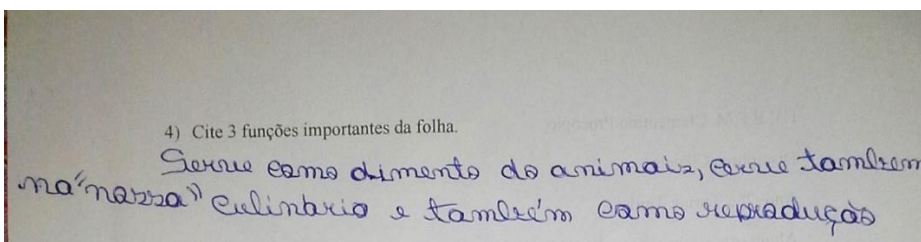 4) Cite 3 funções importantes da folha.
Serve como alimento do animais, cerve tambem
na "nazza" culinário e também como reprodução